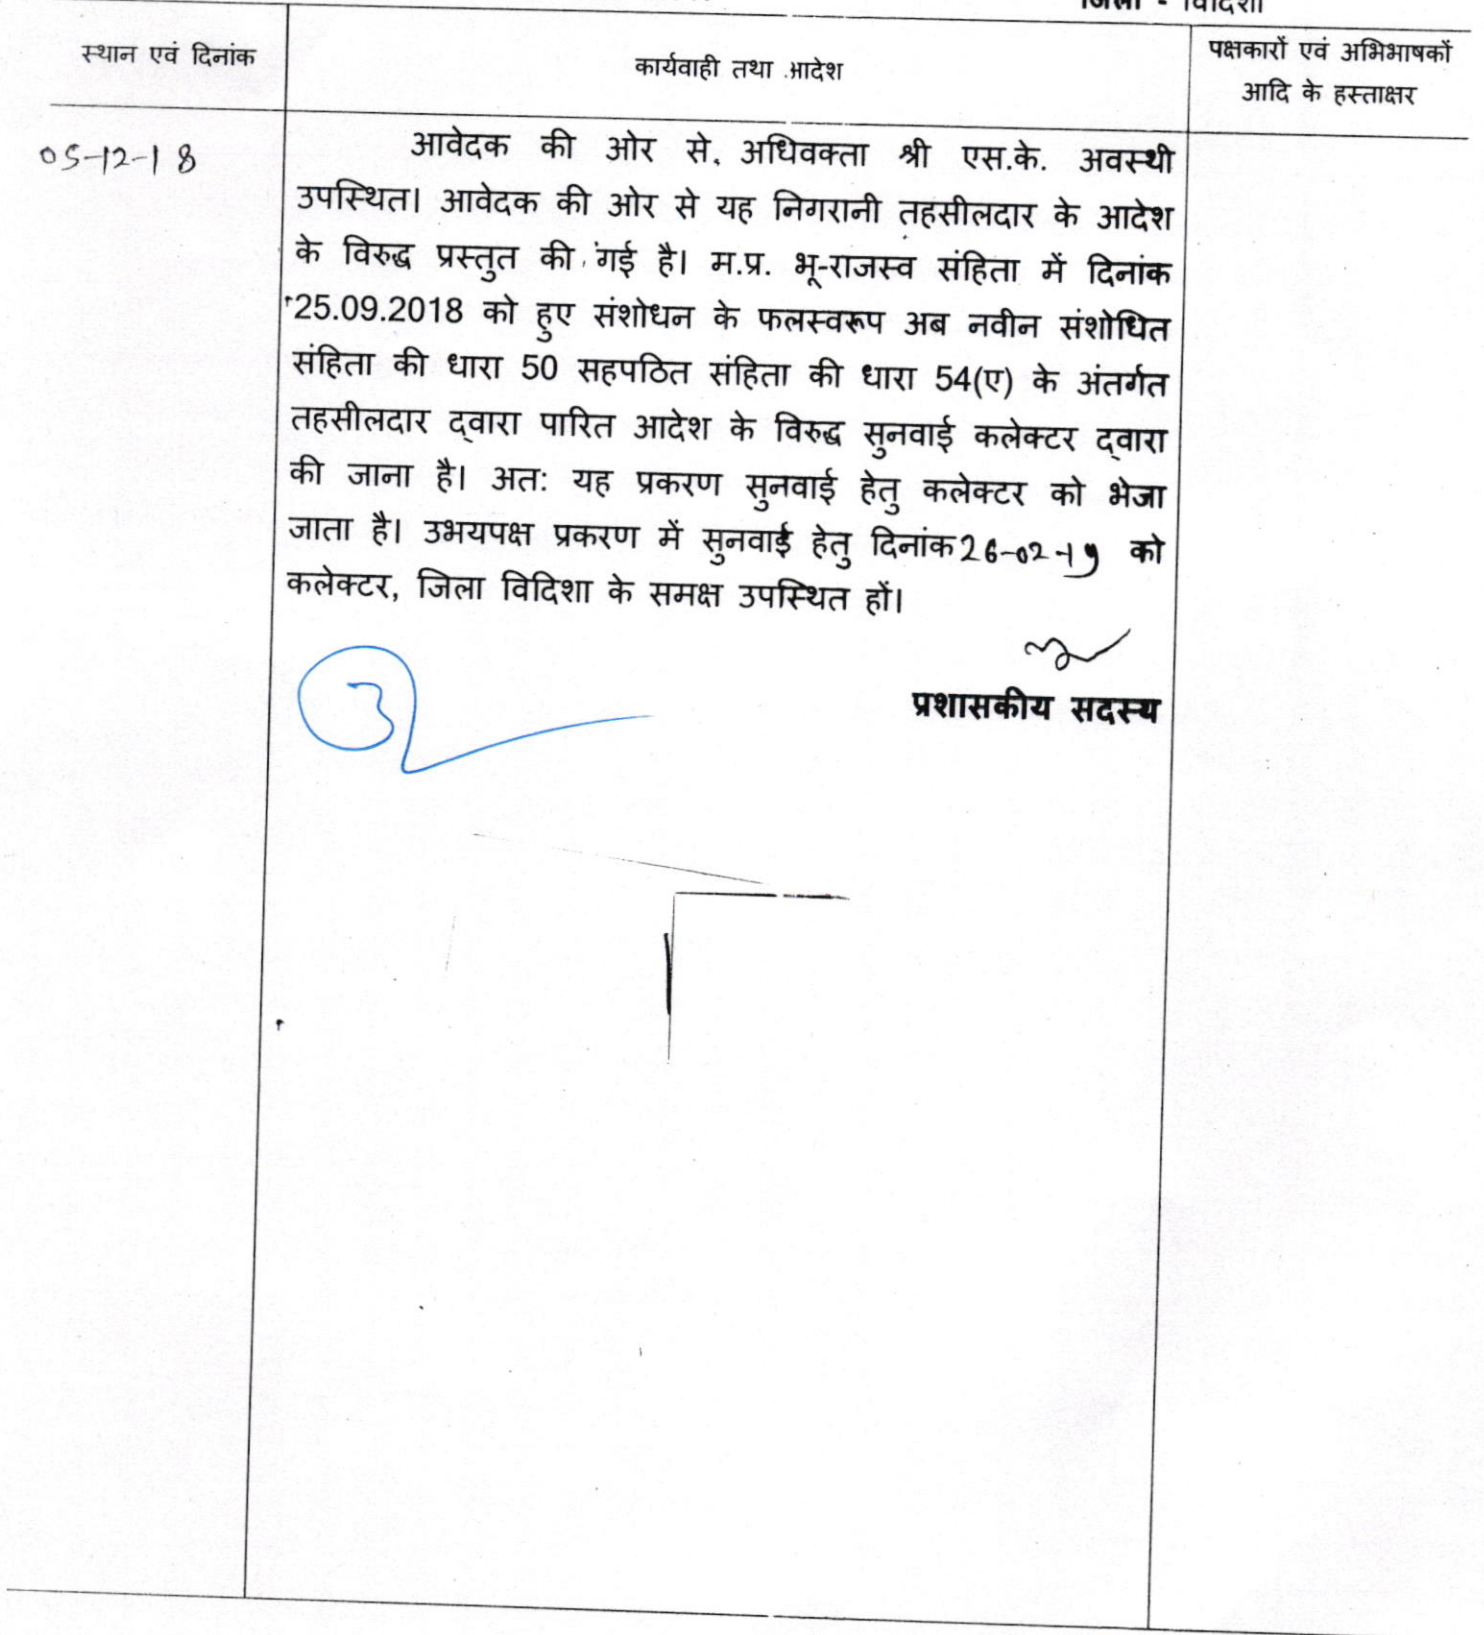 जिला - विदिशा
स्थान एवं दिनांक
कार्यवाही तथा आदेश
पक्षकारों एवं अभिभाषकों
आदि के हस्ताक्षर
05-12-18
आवेदक की ओर से, अधिवक्ता श्री एस.के. अवस्थी
उपस्थित। आवेदक की ओर से यह निगरानी तहसीलदार के आदेश
के विरुद्ध प्रस्तुत की गई है। म.प्र. भू-राजस्व संहिता में दिनांक
25.09.2018 को हुए संशोधन के फलस्वरूप अब नवीन संशोधित
संहिता की धारा 50 सहपठित संहिता की धारा 54(ए) के अंतर्गत
तहसीलदार द्वारा पारित आदेश के विरुद्ध सुनवाई कलेक्टर द्वारा
की जाना है। अतः यह प्रकरण सुनवाई हेतु कलेक्टर को भेजा
जाता है। उभयपक्ष प्रकरण में सुनवाई हेतु दिनांक 26-02-19 को
कलेक्टर, जिला विदिशा के समक्ष उपस्थित हों।
प्रशासकीय सदस्य